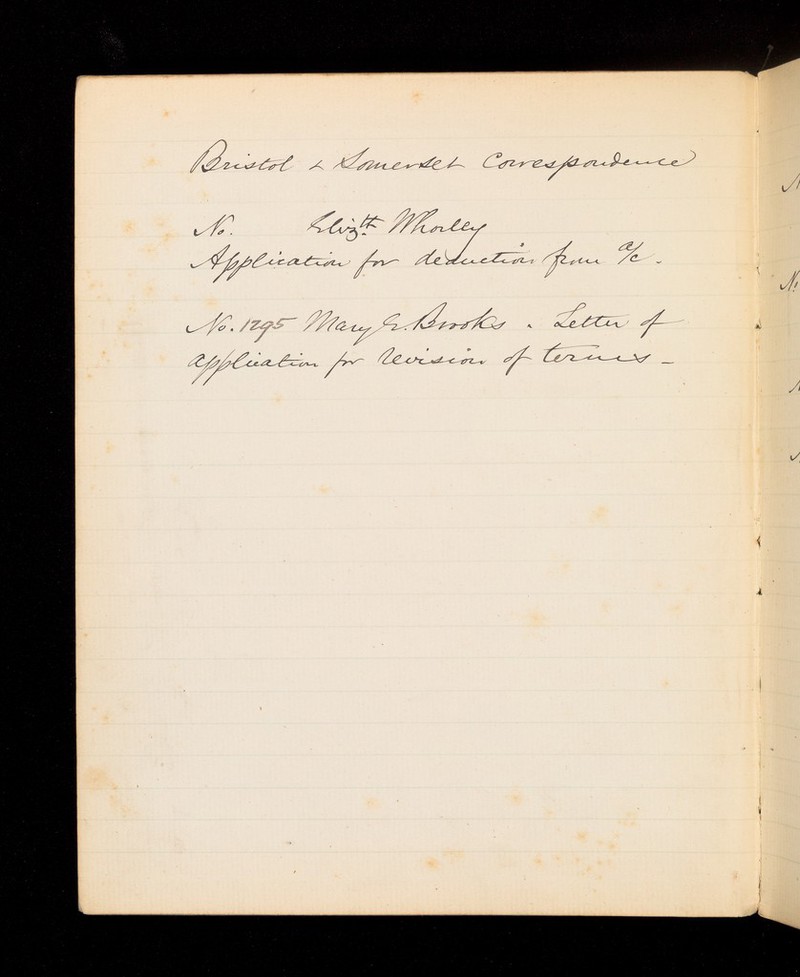 Bristol & Somerset Correspondence
No. Elizth Whorley
Application for deduction from a/c.
No. 1295 Mary E. Brooks. Letter of
application for revision of terms -